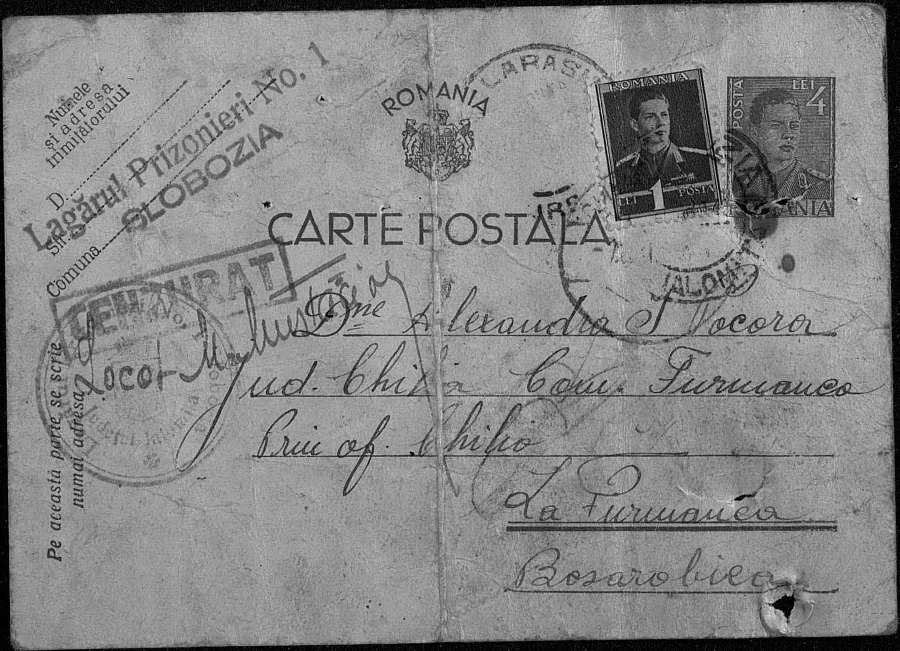 Numele
și adresa
înmițătorului
D.
Lagărul Prizonieri No. 1
SLOBOZIA
Str.
Comuna
CENZURAT
Pe această parte se scrie
numai adresa
ROMANIA
CARTE POSTALA
LARAȘ
ROMANIA
LEI 1 POSTA
POSTA LEI 4
IALOM
Locot
Județul Ialomița
Dne Alexandra
Jud. Chilia Com. Furmanca
Prin of. Chilia
La Furmanca
Basarabiea